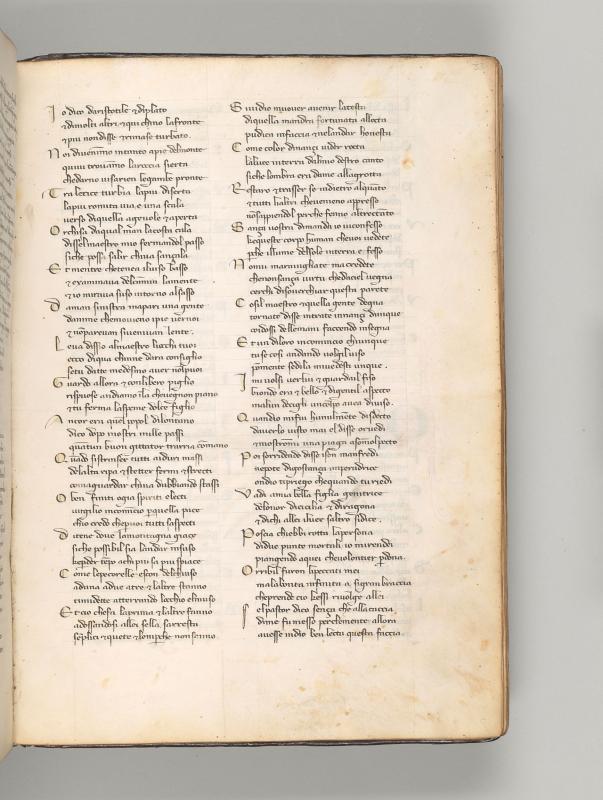 Io dico daristotile & diplato
& dimolti altri & qui chino lafronte
& piu nondisse & rimase turbato.
Noi divenimo intanto apie delmonte
quivi trovamo laroccia sierta
chedarno visarien legambe pronte
Tra lerice turbia lapiu diserta
lapiu romita via e una scala
verso diquella agevole & aperta
Or chisa daqual man lacosta cala
dissel maestro mio fermandol passo
siche possi salir chiva sançala
Et mentre chetenea iluiso basso
& examinava delcamin lamente
& io mirava suso intorno alsasso
Da man sinistra mapari una gente
damime chemovieno ipie vernoi
& nonparevan sivenivan lente.
Leva dissio almaestro liochi tuoi
ecco diqua chine dara consiglio
setu datte medesmo aver nolpuoi
Guardo allora & conlibero piglio
rispuose andiamo ila chevegnon piano
& tu ferma laspene dolce figlio
Ancor era quel popol dilontano
dico dopo inostri mille passi
quatun buon gittator trarria comano
Quado sistrinser tutti aiduri massi
delalta ripa & stetter fermi & strecti
comaguardar chiva dubbiando stassi
O ben finiti ogia spiriti electi
virgilio incomincio pquella pace
chio credo chepvoi tutti saspecti
Ditene dove lamontagna giace
siche possibil sia landar insuso
chelpder tepo achi piu sa piu spiace
Come lepecorelle escon delchiuso
aduna adue atre & laltre stanno
timidette atterrando locchio elmuso
Et cio chefa laprima & laltre fanno
adossandosi allei sella sarresta
seplici & quete & lomperche nonsanno
Si vidio muover avenir latesta
diquella mandra fortunata allocta
pudica infaccia & nelandar honesta
Come color dinançi vider rocta
laluce interra dalmio destro canto
siche lombra era dame allagrotta
Restaro & trasser se indietro alquanto
& tutti laltri chevenieno appresso
nosappiendol perche fenno altrectanto
Sança vostra dimanda io viconfesso
keqesto corpo human chevoi vedete
pche illume delsole interra e fesso
Non vi maravigliate ma credete
chenonsança virtu chedaciel vegna
cerchi disoverchiar questa parete
Cosil maestro & quella gente degna
tornate disse intrate innançi dunque
coidossi dellemani faccendo insegna
Et un diloro incomincio chiunque
tuse cosi andando volgil uiso
ponmente sedila mivedesti unque.
Io mi volsi verlui & guardail fiso
biondo era & bello & digentil aspecto
malun decigli uncolpo avea diviso.
Quandio mifui humilmete disdecto
daverlo visto mai el disse orvedi
& mostromi una piaga asomolpecto
Poi sorridendo disse ison manfredi
nepote digostança imperadrice
ondio tipriego chequando turiedi
Vadi amia bella figlia genitrice
delonor dicicilia & diragona
& dichi allei iluer saltro sidice.
Poscia chiebbi rotta lapersona
didue punte mortali io mirendei
piangendo aquei chevolontier pdona.
Orribil furon lipeccati mei
malabonta infinita a sigran braccia
cheprende cio kessi rivolge allei
Sel pastor dico sença che allacaccia
dime fu messo perclemente allora
avesse indio ben lecta questa faccia.